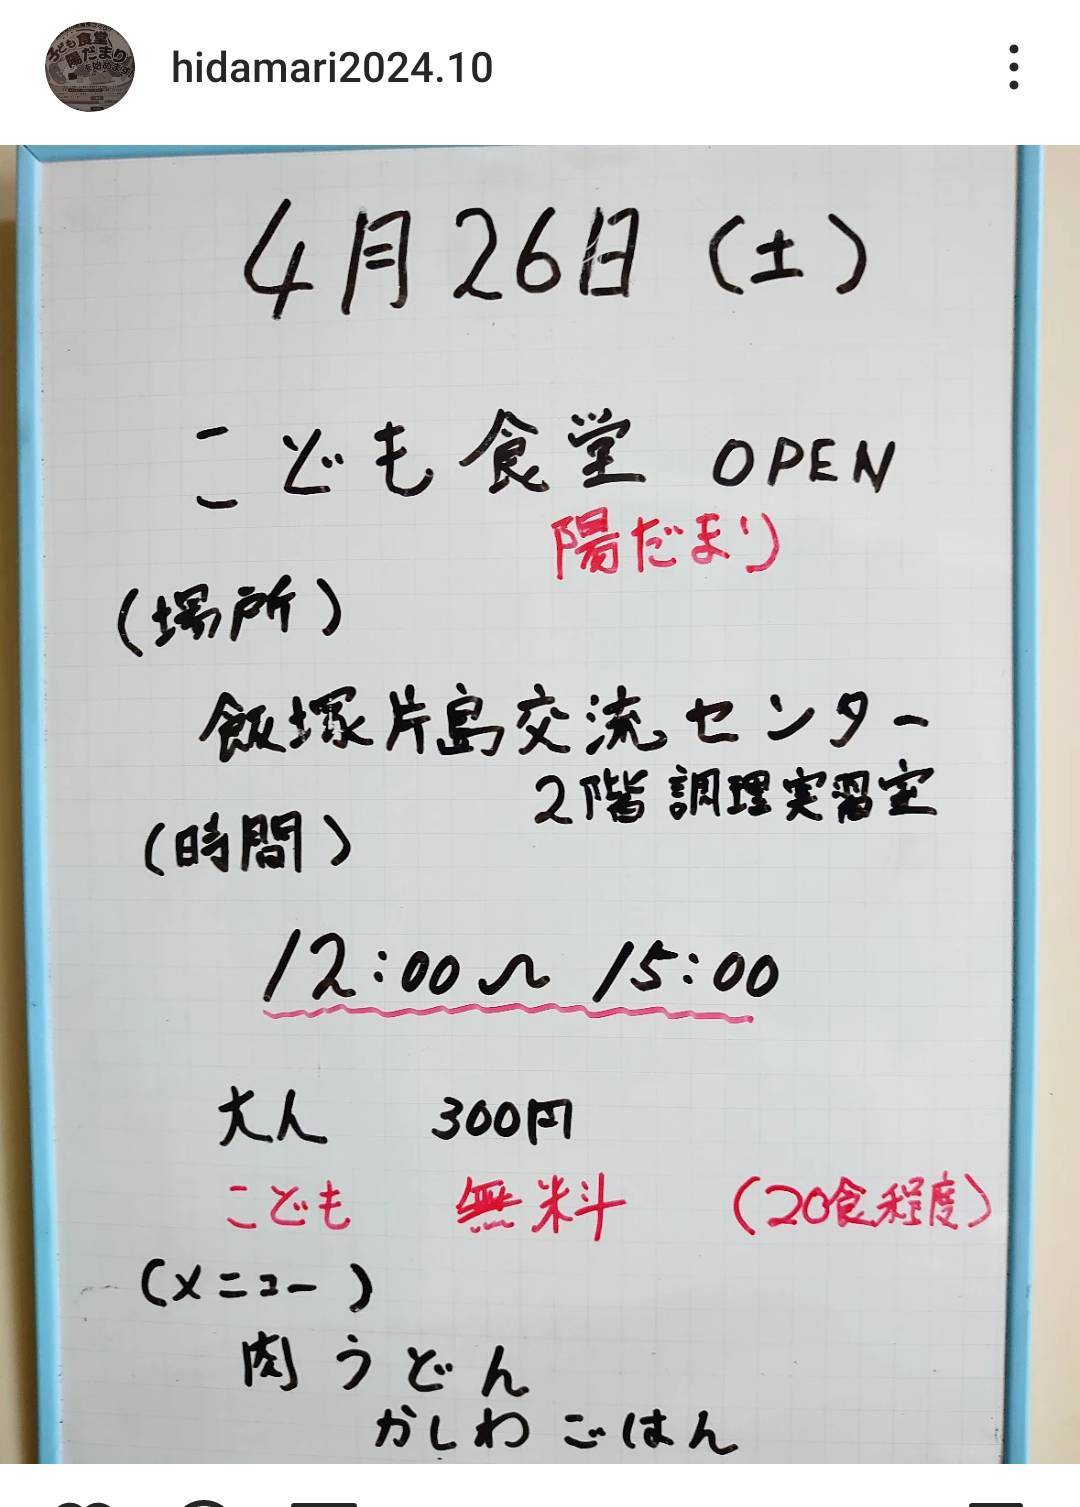 子ども食堂
陽だまり
を始めます
hidamari2024.10
4月26日(土)
こども食堂 OPEN
陽だまり
(場所)
飯塚片島交流センター
2階 調理実習室
(時間)
12:00〜15:00
大人 300円
こども 無料 (20食程度)
(メニュー)
肉うどん
かしわごはん